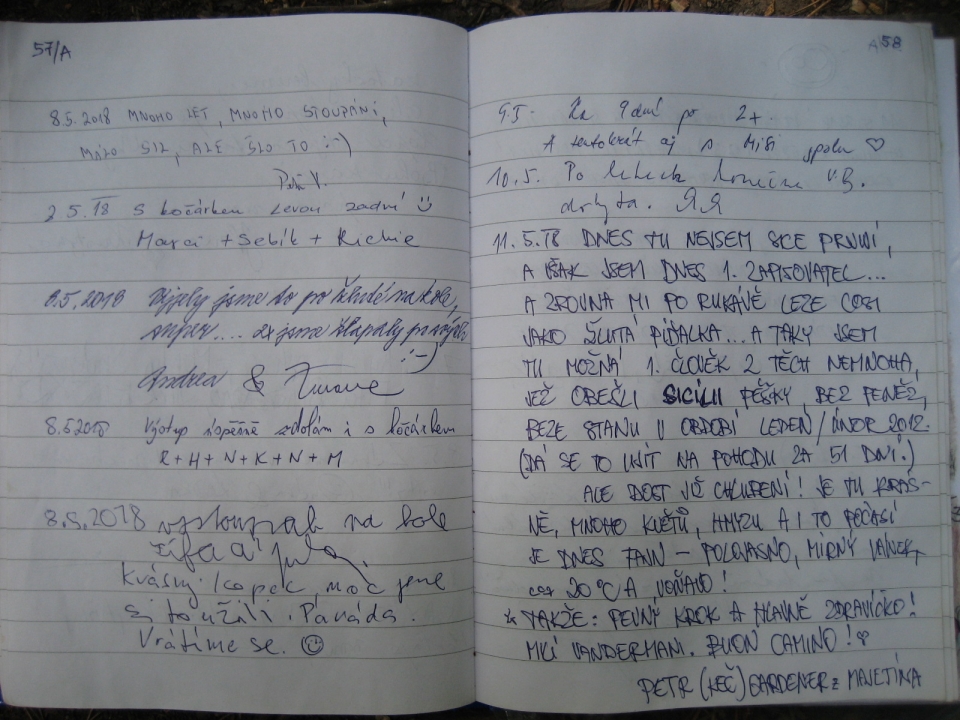 57/A
8.5.2018 MNOHO LET, MNOHO STOUPÁNÍ,
MÁLO SIL, ALE ŠLO TO :-)
Petr V.
2 5.18 S kočárkem levou zadní
Marci + Sebík + Richie
8.5.2018 Vyjely jsme to po žluté na kole,
super....
:-)
Andrea & Zuzana
8.5.2018 Výstup úspěšně zdolán i s kočárkem
R+H+N+K+N+M
8.5.2018 na kole
a
Krásný kopec, moc jsme
si to užili. Paráda.
Vrátíme se.
58
9.5. Za 9 dní po 2+.
A tentokrát aj s Miši spolu ♡
10.5. Po letech konečně V.B.
dobyta. ЯЯ
11.5.18 DNES TU NEJSEM SICE PRVNÍ,
A VŠAK JSEM DNES 1. ZAPISOVATEL...
A ZROVNA MI PO RUKÁVĚ LEZE COSI
JAKO ŽLUTÁ PÍĎALKA... A TAKY JSEM
TU MOŽNÁ 1. ČLOVĚK Z TĚCH NEMNOHA,
JEŽ OBEŠLI SICÍLII PĚŠKY, BEZ PENĚZ,
BEZE STANU V OBDOBÍ LEDEN/ÚNOR 2012.
(DÁ SE TO UJÍT NA POHODU ZA 51 DNÍ.)
ALE DOST JIŽ CHLUBENÍ! JE TU KRÁS-
NĚ, MNOHO KVĚTŮ, HMYZU A I TO POČASÍ
JE DNES FAJN - POLOJASNO, MÍRNÝ VÁNEK,
cca 20°C A VOŇAVO!
* TAKŽE: PEVNÝ KROK A HLAVNĚ ZDRAVÍČKO!
MILÍ VANDERMANI. BUON CAMINO! ♡
PETR (KEČ) GARDENER z MAJETÍNA